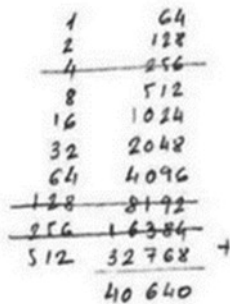 1 64
2 128
4 256
8 512
16 1024
32 2048
64 4096
128 8192
256 16384
512 32768 +
40 640